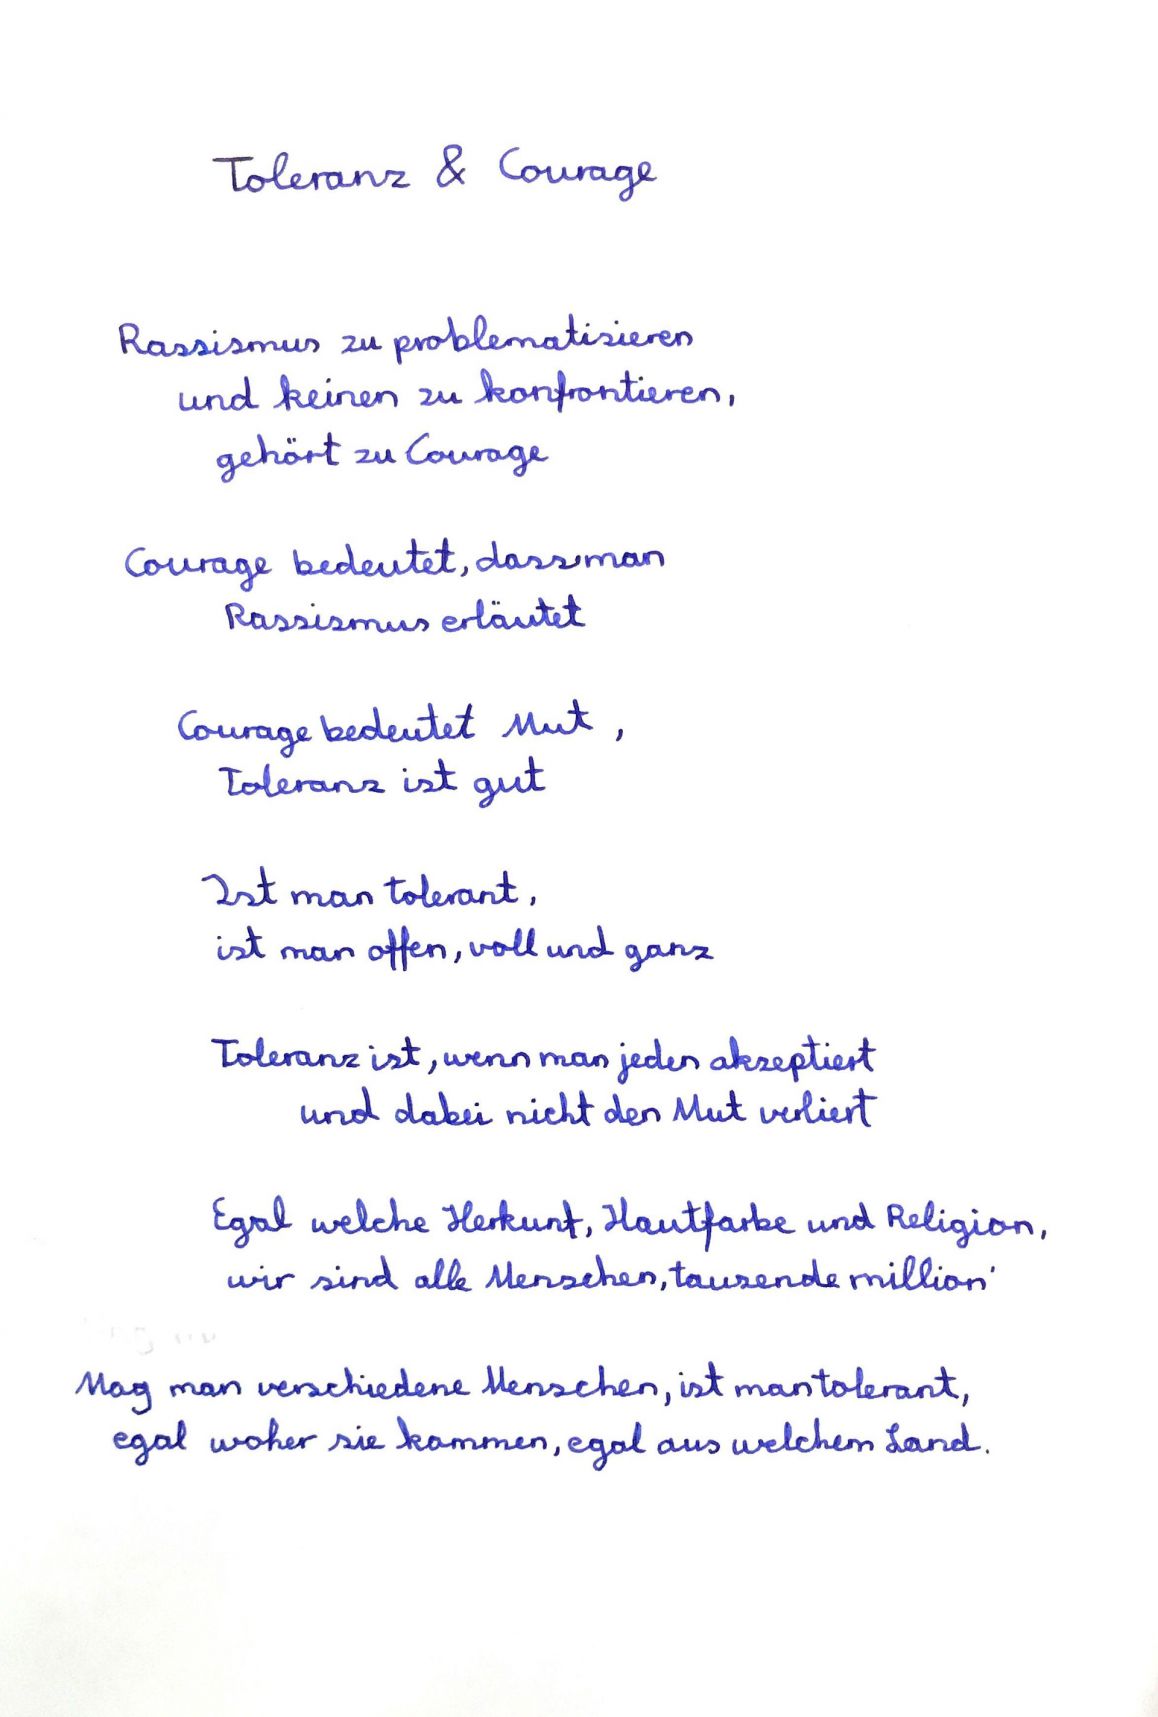 Toleranz & Courage
Rassismus zu problematisieren
und keinen zu konfrontieren,
gehört zu Courage
Courage bedeutet, dass man
Rassismus erläutet
Courage bedeutet Mut,
Toleranz ist gut
Ist man tolerant,
ist man offen, voll und ganz
Toleranz ist, wenn man jeden akzeptiert
und dabei nicht den Mut verliert
Egal welche Herkunft, Hautfarbe und Religion,
wir sind alle Menschen, tausende million'
Mag man verschiedene Menschen, ist man tolerant,
egal woher sie kommen, egal aus welchem Land.